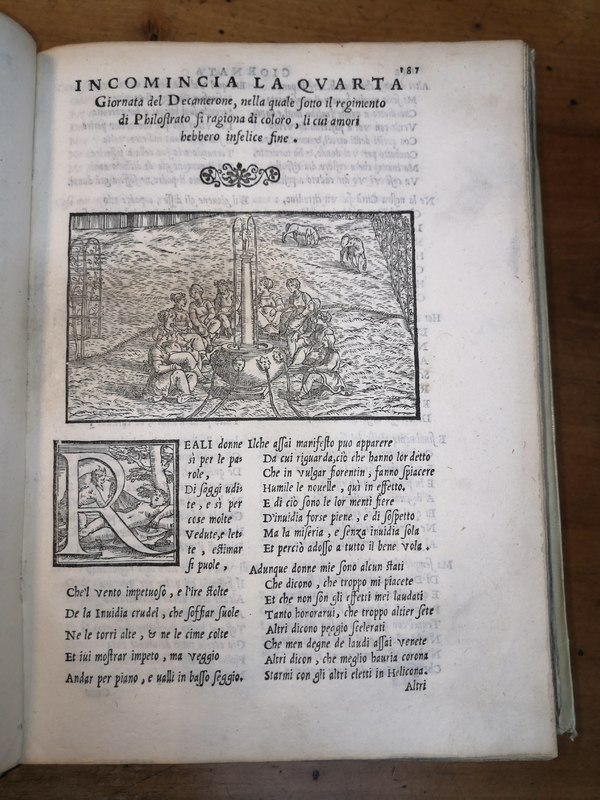 187
INCOMINCIA LA QVARTA
Giornata del Decamerone, nella quale sotto il regimento
di Philostrato si ragiona di coloro, li cui amori
hebbero infelice fine.
REALI donne
sì per le pa
role,
Di saggi udi
te, e sì per
cose molte
Vedute, e let
te, estimar
si puole,
Che'l vento impetuoso, e l'ire stolte
De la Inuidia crudel, che soffiar suole
Ne le torri alte, & ne le cime colte
Et iui mostrar impeto, ma veggio
Andar per piano, e ualli in basso seggio.
Ilche assai manifesto puo apparere
Da cui riguarda, ciò che hanno lor detto
Che in vulgar fiorentin, fanno spiacere
Humile le nouelle, quì in effetto.
E di ciò sono le lor menti fiere
D'inuidia forse piene, e di sospetto
Ma la miseria, e senza inuidia sola
Et perciò adosso a tutto il bene vola.
Adunque donne mie sono alcun stati
Che dicono, che troppo mi piacete
Et che non son gli effetti mei laudati
Tanto hororarui, che troppo altier sete
Altri dicono peggio scelerati
Che men degne de laudi assai venete
Altri dicon, che meglio hauria corona
Starmi con gli altri eletti in Helicona.
Altri